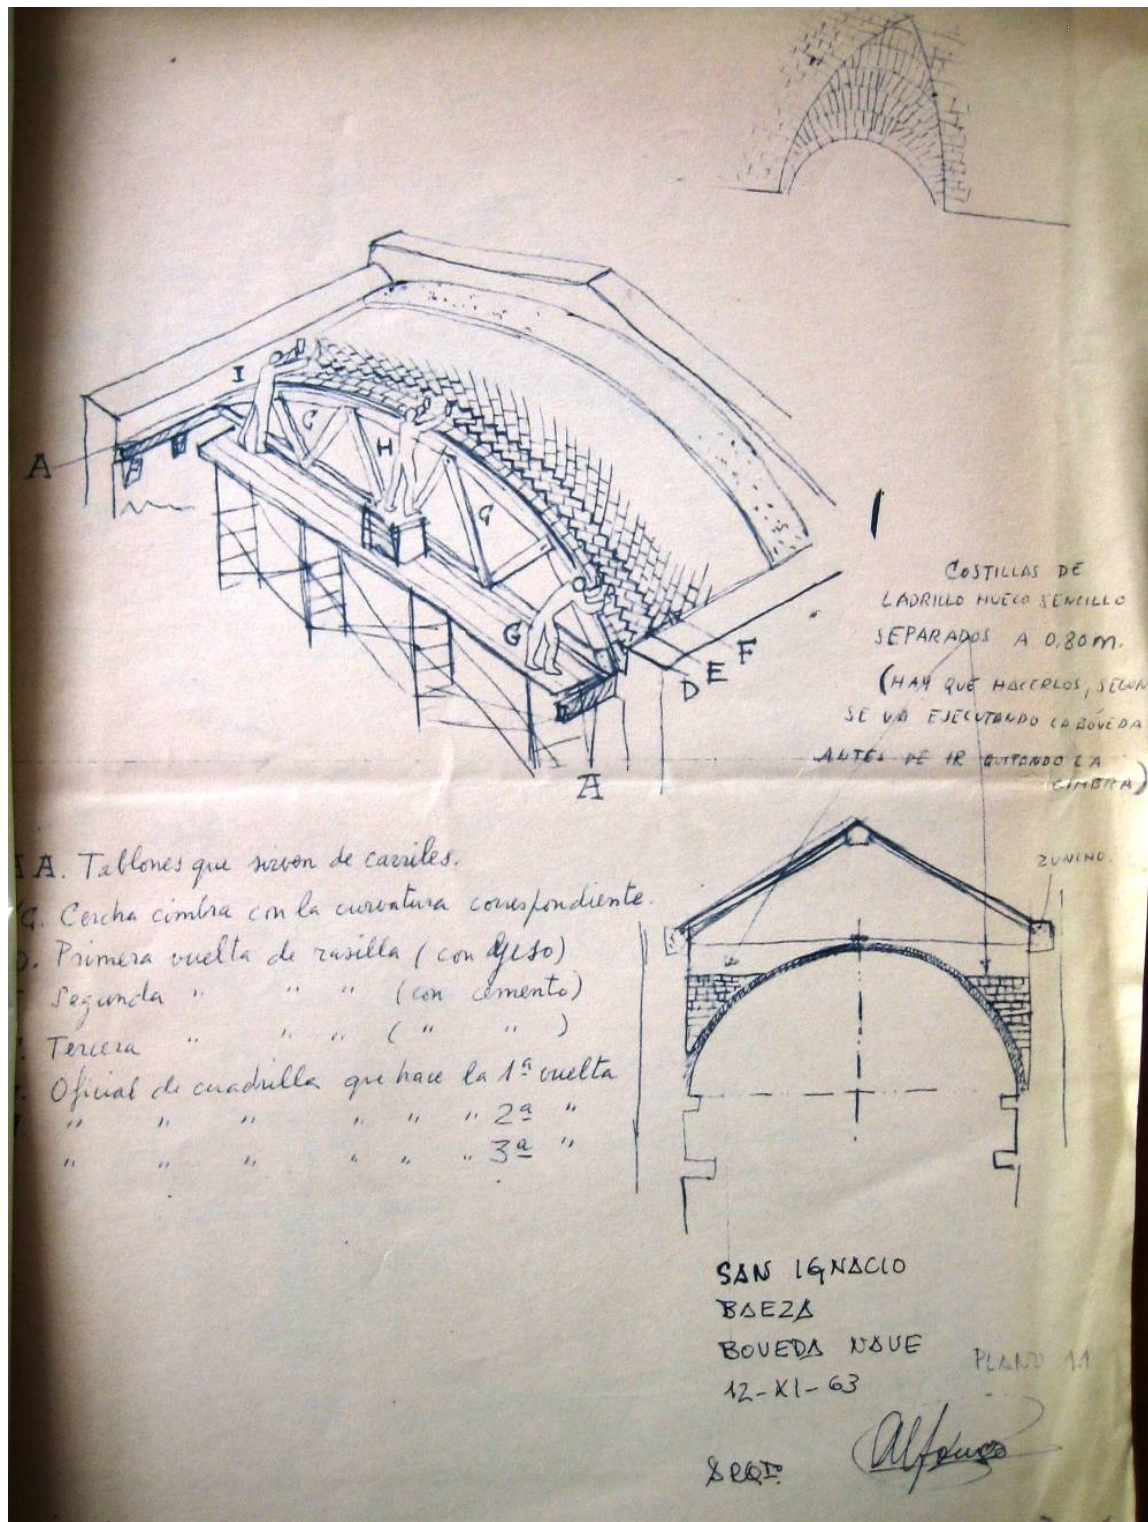 I
C
H
G
A
G
F
E
D
A
1
COSTILLAS DE
LADRILLO HUECO SENCILLO
SEPARADOS A 0,80 m.
(HAY QUE HACERLOS, SEGUN
SE VA EJECUTANDO LA BÓVEDA
ANTES DE IR QUITANDO LA
CIMBRA)
ZUNCHO.
A. Tablones que sirven de carriles.
C. Cercha cimbra con la curvatura correspondiente.
. Primera vuelta de rasilla (con yeso)
Segunda " " " (con cemento)
. Tercera " " " ( " " )
. Oficial de cuadrilla que hace la 1ª vuelta
" " " " " " 2ª "
" " " " " " 3ª "
SAN IGNACIO
BAEZA
BOVEDA NAVE
12-XI-63
PLANO 11
ARQTº
Alfonso